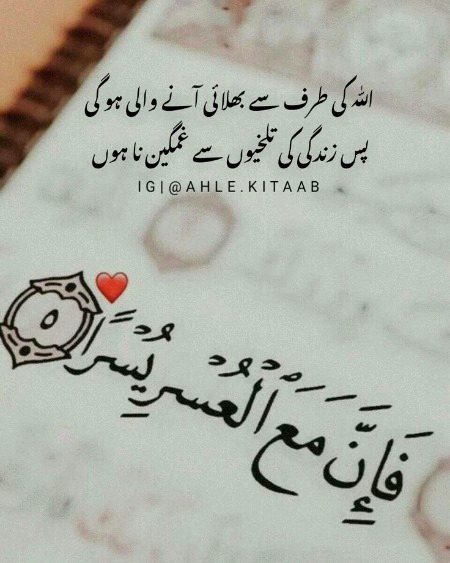 اللہ کی طرف سے بھلائی آنے والی ہو گی
پس زندگی کی تلخیوں سے غمگین نا ہوں
IG|@AHLE.KITAAB
فَإِنَّ مَعَ الْعُسْرِ يُسْرًا ٥